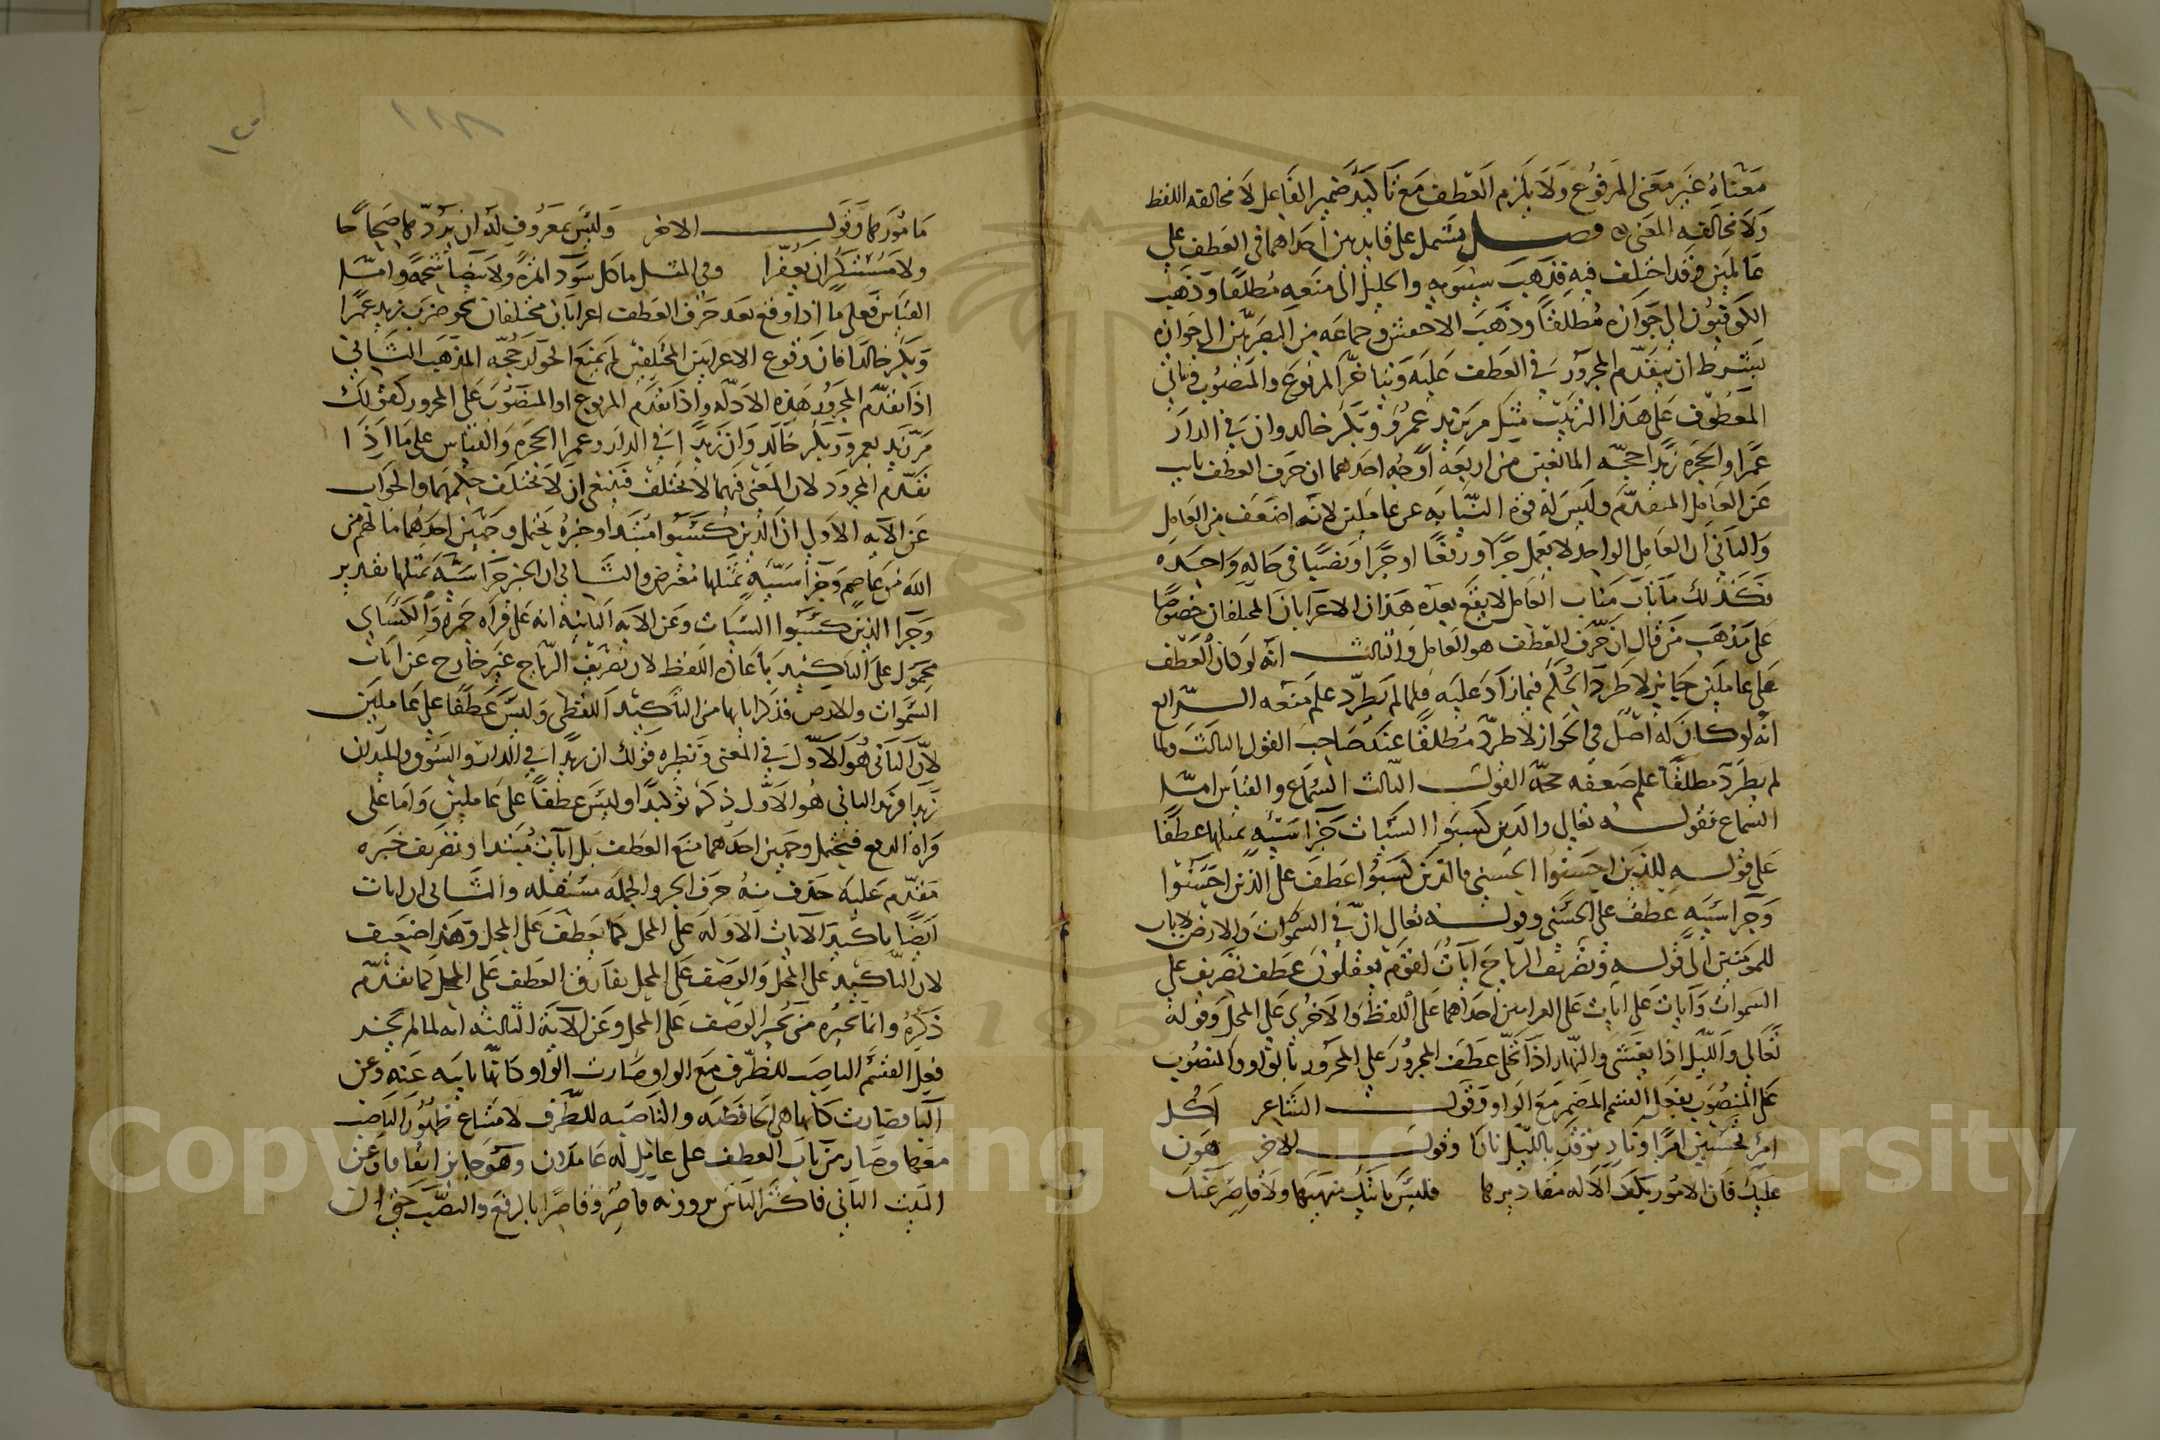 معناه غير معنى المرفوع ولا يلزم العطف مع تأكيد ضمير الفاعل لا مخالفه اللفظ
ولا مخالفه المعنى فصل يشتمل على فايدتين احداهما في العطف على
عاملين وقد اختلف فيه فذهب سيبويه والخليل الى منعه مطلقا وذهب
الكوفيون الى جوازه مطلقا وذهب الاخفش وجماعه من البصريين الى جوازه
بشرط ان يتقدم المجرور في العطف عليه ويتاخر المرفوع والمنصوب وياتي
المعطوف على هذا الترتيب مثل مر بزيد عمرو وبكر خالد وان في الدار
عمرا والحجرة زيدا حجه المانعين من اربعه اوجه احدهما ان حرف العطف نايب
عن العامل المتقدم وليس له قوة النيابه عن عاملين لانه اضعف من العامل
والثاني ان العامل الواحد لا يعمل جرا ورفعا او جرا ونصبا في حاله واحده
فكذلك ما ناب مناب العامل لا يقع بعده هذان الاعرابان المختلفان خصوصا
على مذهب من قال ان حرف العطف هو العامل والثالث انه لو كان العطف
على عاملين جايز لاطرد الحكم فيما زاد عليه فلما لم يطرد علم منعه الرابع
انه لو كان له اصل في الجواز لاطرد مطلقا عند صاحب القول الثالث ولما
لم يطرد مطلقا علم ضعفه حجة القول الثالث السماع والقياس امّا
السماع فقوله تعالى والذين كسبوا السيات جزا سيئه بمثلها عطفا
على قوله للذين احسنوا الحسنى فالذين كسبوا عطف على الذين احسنوا
وجزا سيئه عطف على الحسنى وقوله تعالى ان في السموات والارض لايات
للمومنين الى قوله وتصريف الرياح آيات لقوم يعقلون عطف تصريف على
السموات وآيات على ايات على القراءتين احداهما على اللفظ والاخرى على المحل وقوله
تعالى والليل اذا يغشى والنهار اذا تجلى عطف المجرور على المجرور بالواو والمنصوب
على المنصوب بفعل القسم المضمر مع الواو وقول الشاعر اكل
امرئ تحسبين امرا ونار توقد بالليل نارا وقول الاخر هون
عليك فان الامور بكف الاله مقاديرها فليس باتيك منهيها ولا قاصر عنك
مامورها وقول الاخر وليس بمعروف لنا ان نردها صحاحا
ولا مستنكر ان تعقرا وفي المثل ما كل سودآ تمرة ولا بيضا شحمة وامّا
القياس فعلى ما اذا وقع بعد حرف العطف اعرابان مختلفان نحو ضرب زيد عمرا
وبكر خالدا فان وقوع الاعرابين المختلفين لم يمنع الجواز حجه المذهب الثاني
اذا تقدم المجرور هذه الادله واذا تقدم المرفوع او المنصوب على المجرور كقولك
مر زيد بعمرو وبكر خالد وان زيدا في الدار وعمرا الحجرة والقياس على ما اذا
تقدم المجرور لان المعنى فيهما لا يختلف فينبغي ان لا يختلف حكمهما والجواب
عن الآيه الاولى ان الذين كسبوا مبتدا وخبره يحتمل وجهين احدهما ما لهم من
الله من عاصم وجزا سيّئة بمثلها معترض والثاني ان الخبر جزا سيئه بمثلها تقدير
وجزا الذين كسبوا السيات وعن الايه الثانيه انه على قراه حمزة والكساي
محمول على التاكيد باعاده اللفظ لان تصريف الرياح غير خارج عن ايات
السموات والارض فذكر اياتها من التاكيد اللفظي وليس عطفا على عاملين
لان الثاني هو الاول في المعنى ونظيره قولك ان زيدا في الدار والسوق والميدان
زيدا فزيد الثاني هو الاول ذكر توكيدا وليس عطفا على عاملين واما على
قراه الرفع فتحتمل وجهين احدهما منع العطف بل آيات مبتدا وتصريف خبره
مقدم عليه حذف منه حرف الجر والجمله مستقله والثاني ان ايات
ايضا تاكيد الآيات الاوله على المحل كما يعطف على المحل وهذا ضعيف
لان التاكيد على المحل والوصف على المحل يفارق العطف على المحل كما تقدم
ذكره وانما يجيزه من يجيز الوصف على المحل وعن الآية الثالثه انه لما لم يجز
فعل القسم الناصب للظرف مع الواو صارت الواو كانها نايبه عنه وعن
البا فصارت كانها هي الخافضه والناصبه للظرف لامتناع ظهور الناصب
معها وصار من باب العطف على عامل له عاملان وهو جايز اتفاقا وعن
البيت الثاني فاكثر الناس يروونه قاصرٌ وقاصرا بالرفع والنصب حتى ان